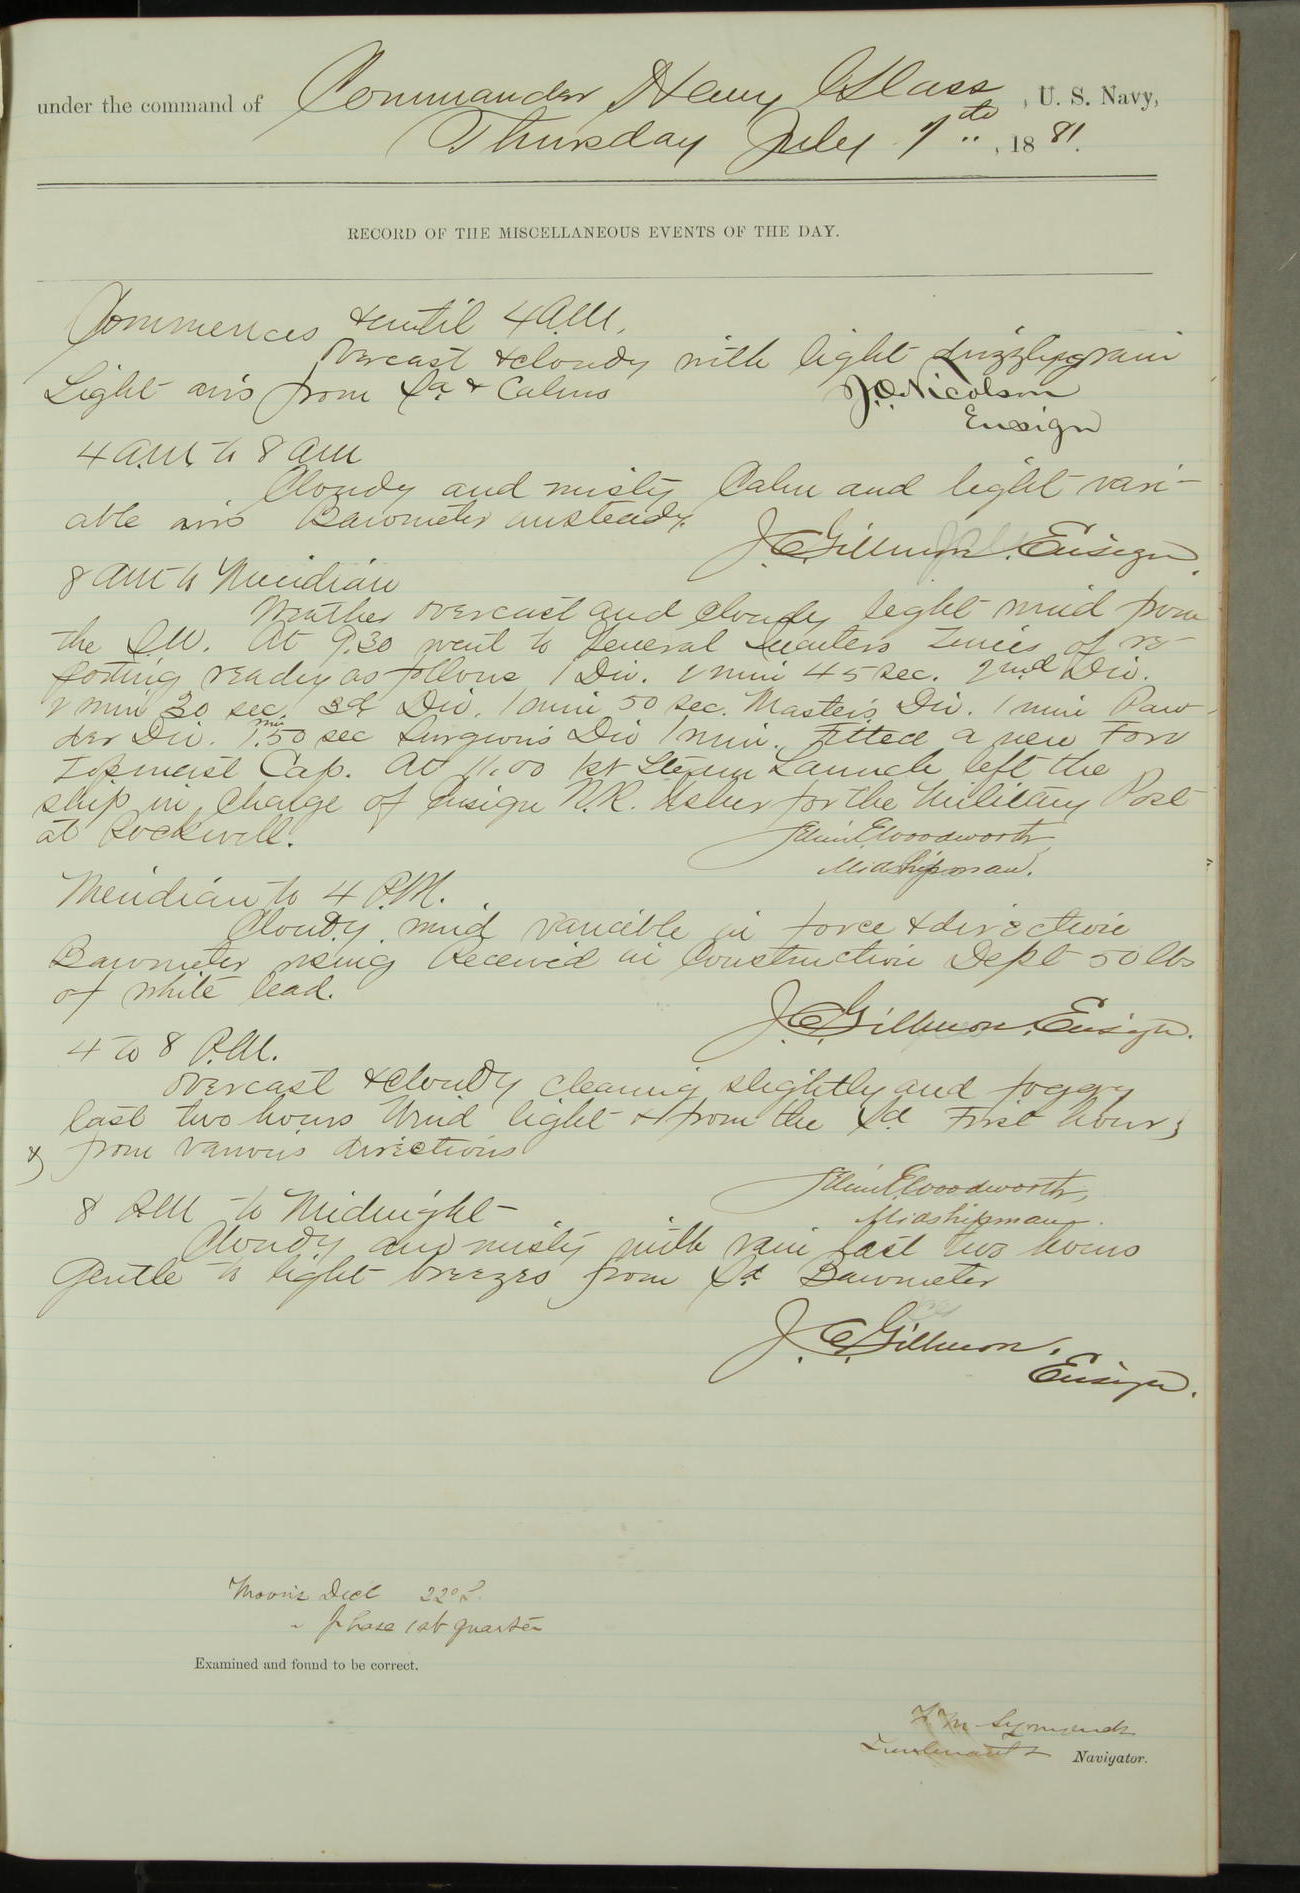 under the command of Commander Henry Glass, U. S. Navy,
Thursday July 7th, 1881.
RECORD OF THE MISCELLANEOUS EVENTS OF THE DAY.
Commences & until 4 A.M.
Overcast & cloudy with light drizzling rain
Light airs from Sd & Calms
J.O. Nicolson
Ensign
4 A.M. to 8 AM
Cloudy and misty Calm and light vari-
able airs Barometer unsteady.
J.C. Gillmore. Ensign.
8 AM to Meridian
Weather overcast and cloudy light wind from
the S.W. At 9.30 went to General Quarters times of re-
porting ready as follows 1 Div. 1 min 45 sec. 2nd Div.
1 min 30 sec. 3d Div. 1 min 50 sec. Master's Div. 1 min Pow-
der Div. 1 min. 50 sec Surgeon's Div 1 min. Fitted a new Fore
Topmast Cap. At 11.00 1st Steam Launch left the
ship in charge of Ensign N.R. Usher for the Military Post
at Rockwell.
Selim E. Woodworth
Midshipman.
Meridian to 4 P.M.
Cloudy. wind variable in force & direction
Barometer rising Received in Construction Dept 50 lbs
of white lead.
J.C. Gillmore. Ensign.
4 to 8 P.M.
Overcast & cloudy clearing slightly and foggy
last two hours Wind light & from the Sd First hours
& from various directions
Selim E. Woodworth,
Midshipman.
8 PM to Midnight
Cloudy and misty with rain last two hours
Gentle to light breezes from Sd Barometer
J.C. Gillmore.
Ensign.
Moon's Decl 22° S.
" Phase 1st quarter
Examined and found to be correct.
F. M. Symonds
Lieutenant & Navigator.